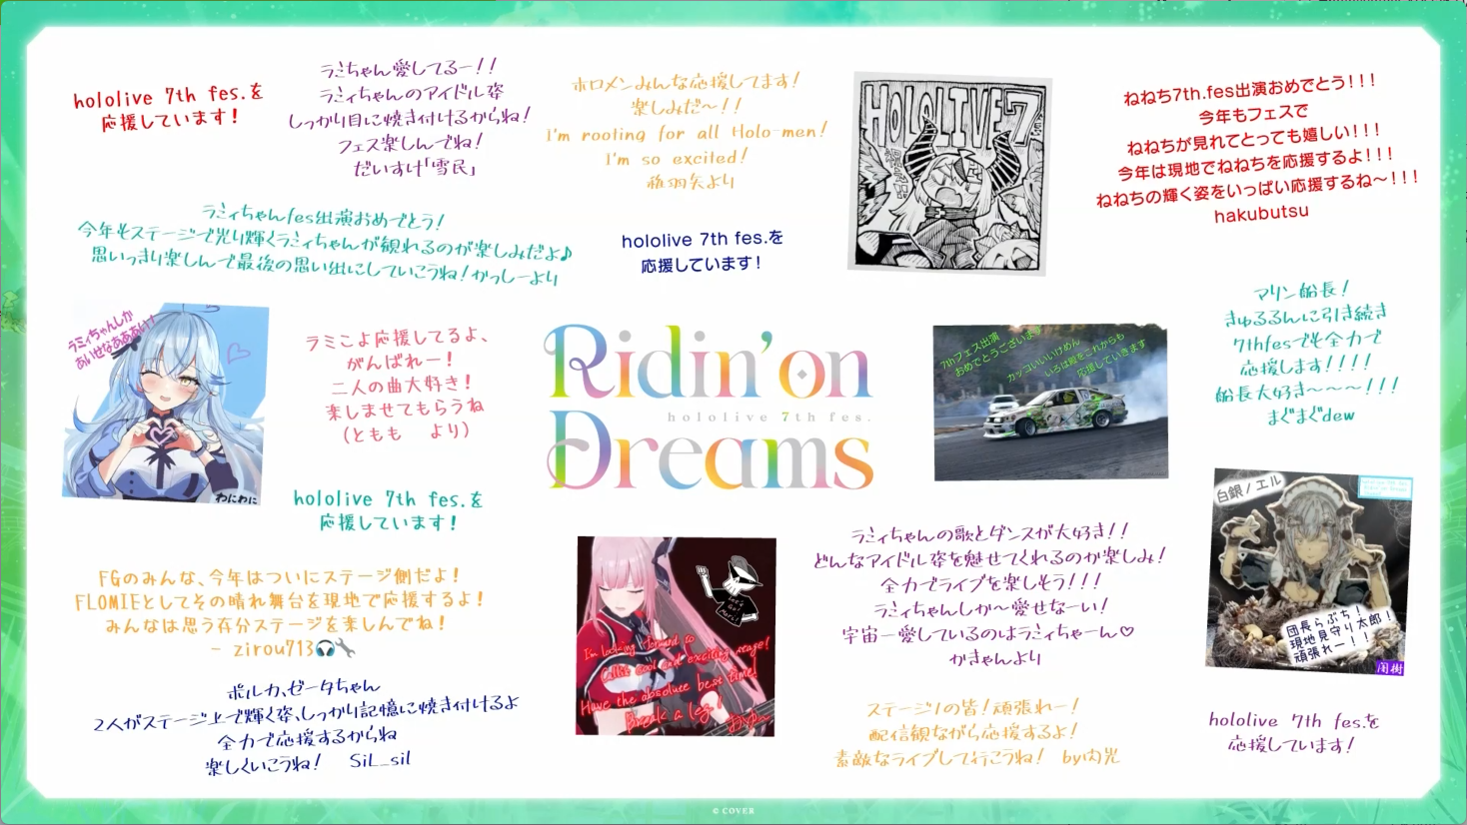 hololive 7th fes.を
応援しています！
ラミちゃん愛してるー！！
ラミィちゃんのアイドル姿
しっかり目に焼き付けるからね！
フェス楽しんでね！
だいすけ「雪民」
ホロメンみんな応援してます！
楽しみだ〜！！
I'm rooting for all Holo-men！
I'm so excited！
HOLOLIVE 7
ねねち7th.fes出演おめでとう！！！
今年もフェスで
ねねちが見れてとっても嬉しい！！！
今年は現地でねねちを応援するよ！！！
ねねちの輝く姿をいっぱい応援するね〜！！！
hakubutsu
ラミィちゃんfes出演おめでとう！
今年もステージで光り輝くラミィちゃんが観れるのが楽しみだよ♪
思いっきり楽しんで最後の思い出にしていこうね！かっしーより
hololive 7th fes.を
応援しています！
マリン船長！
きゅるるんに引き続き
7thfesでも全力で
応援します！！！！
船長大好き〜〜〜！！！
まぐまぐdew
ラミィちゃんしか
あいせなああああい！
わにわに
ラミこよ応援してるよ、
がんばれー！
二人の曲大好き！
楽しませてもらうね
（ともも　より）
Ridin'on
hololive 7th fes.
Dreams
7thフェス出演
おめでとうございます
カッコいいけめん
いろは殿をこれからも
応援していきます
hololive 7th fes.を
応援しています！
白銀ノエル
団長らぶち！
現地見守り太郎！
頑張れー！！
闇樹
FGのみんな、今年はついにステージ側だよ！
FLOMIEとしてその晴れ舞台を現地で応援するよ！
みんなは思う存分ステージを楽しんでね！
- zirou713🎧🔧
I'm looking forward to
Calli's cool and exciting stage!
Have the absolute best time!
Break a leg!
ラミィちゃんの歌とダンスが大好き！！
どんなアイドル姿を魅せてくれるのか楽しみ！
全力でライブを楽しもう！！！
ラミィちゃんしか〜愛せなーい！
宇宙一愛しているのはラミィちゃーん♡
かきゃんより
ポルカ、ゼータちゃん
2人がステージ上で輝く姿、しっかり記憶に焼き付けるよ
全力で応援するからね
楽しくいこうね！　SiL_sil
ステージ1の皆！頑張れー！
配信観ながら応援するよ！
素敵なライブして行こうね！　by内光
hololive 7th fes.を
応援しています！
© COVER